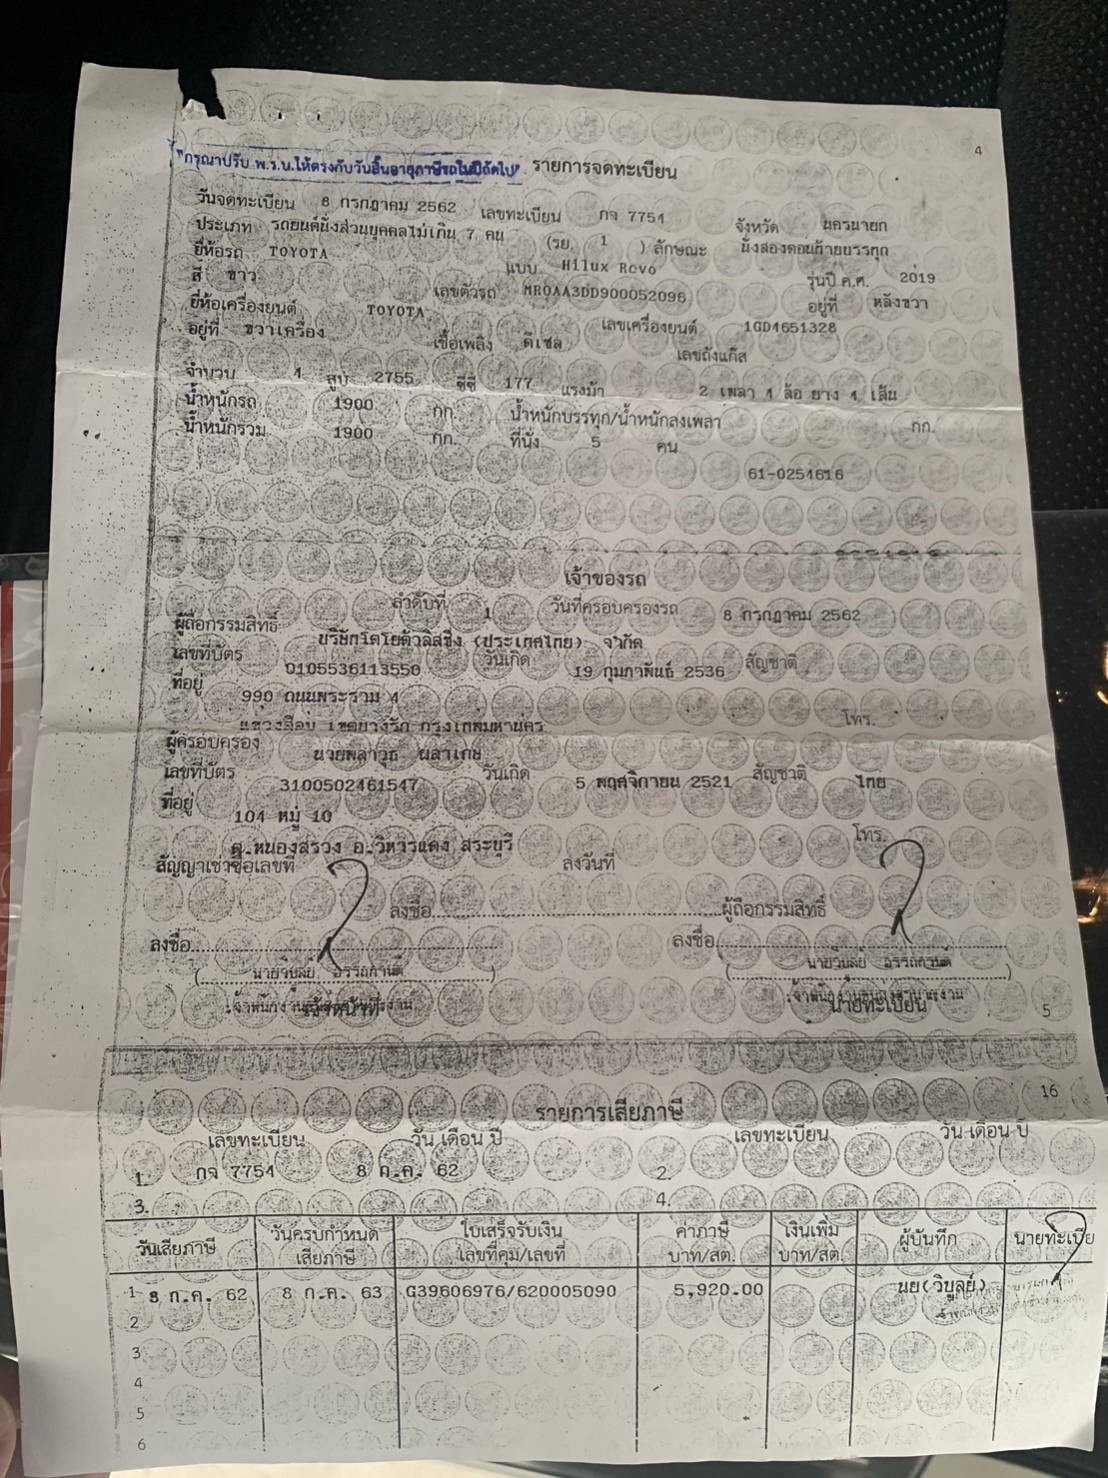 4
"กรุณาปรับ พ.ร.บ.ให้ตรงกับวันสิ้นอายุภาษีรถในปีถัดไป" รายการจดทะเบียน
วันจดทะเบียน 8 กรกฎาคม 2562 เลขทะเบียน กจ 7754 จังหวัด นครนายก
ประเภท รถยนต์นั่งส่วนบุคคลไม่เกิน 7 คน (รย. 1 ) ลักษณะ นั่งสองตอนท้ายบรรทุก
ยี่ห้อรถ TOYOTA แบบ Hilux Revo รุ่นปี ค.ศ. 2019
สี ขาว เลขตัวรถ MR0AA3DD900052096 อยู่ที่ หลังขวา
ยี่ห้อเครื่องยนต์ TOYOTA เลขเครื่องยนต์ 1GD4651328
อยู่ที่ ขวาเครื่อง เชื้อเพลิง ดีเซล เลขถังแก๊ส
จำนวน 4 สูบ 2755 ซีซี 177 แรงม้า 2 เพลา 4 ล้อ ยาง 4 เส้น
น้ำหนักรถ 1900 กก. น้ำหนักบรรทุก/น้ำหนักลงเพลา กก.
น้ำหนักรวม 1900 กก. ที่นั่ง 5 คน
61-0254616
เจ้าของรถ
ลำดับที่ 1 วันที่ครอบครองรถ 8 กรกฎาคม 2562
ผู้ถือกรรมสิทธิ์ บริษัทโตโยต้าลีสซิ่ง (ประเทศไทย) จำกัด
เลขที่บัตร 0105536113550 วันเกิด 19 กุมภาพันธ์ 2536 สัญชาติ
ที่อยู่ 990 ถนนพระราม 4
แขวงสีลม เขตบางรัก กรุงเทพมหานคร โทร.
ผู้ครอบครอง นายพลาวุธ
เลขที่บัตร 3100502461547 วันเกิด 5 พฤศจิกายน 2521 สัญชาติ ไทย
ที่อยู่ 104 หมู่ 10
ต.หนองสรวง อ.วิหารแดง สระบุรี โทร.
สัญญาเช่าซื้อเลขที่ ลงวันที่
ลงชื่อ ผู้ถือกรรมสิทธิ์
ลงชื่อ ลงชื่อ
(นายวิบูลย์ อรรถกานต์) (นายวิบูลย์ อรรถกานต์)
เจ้าหน้าที่ นายทะเบียน
5
16
รายการเสียภาษี
เลขทะเบียน วัน เดือน ปี เลขทะเบียน วัน เดือน ปี
1. กจ 7754 8 ก.ค. 62 2.
3. 4.
วันเสียภาษี วันครบกำหนดเสียภาษี ใบเสร็จรับเงิน เล่มที่คุม/เลขที่ ค่าภาษี บาท/สต. เงินเพิ่ม บาท/สต. ผู้บันทึก นายทะเบีย
1 8 ก.ค. 62 8 ก.ค. 63 G39606976/620005090 5,920.00 นย(วิบูลย์)
2
3
4
5
6